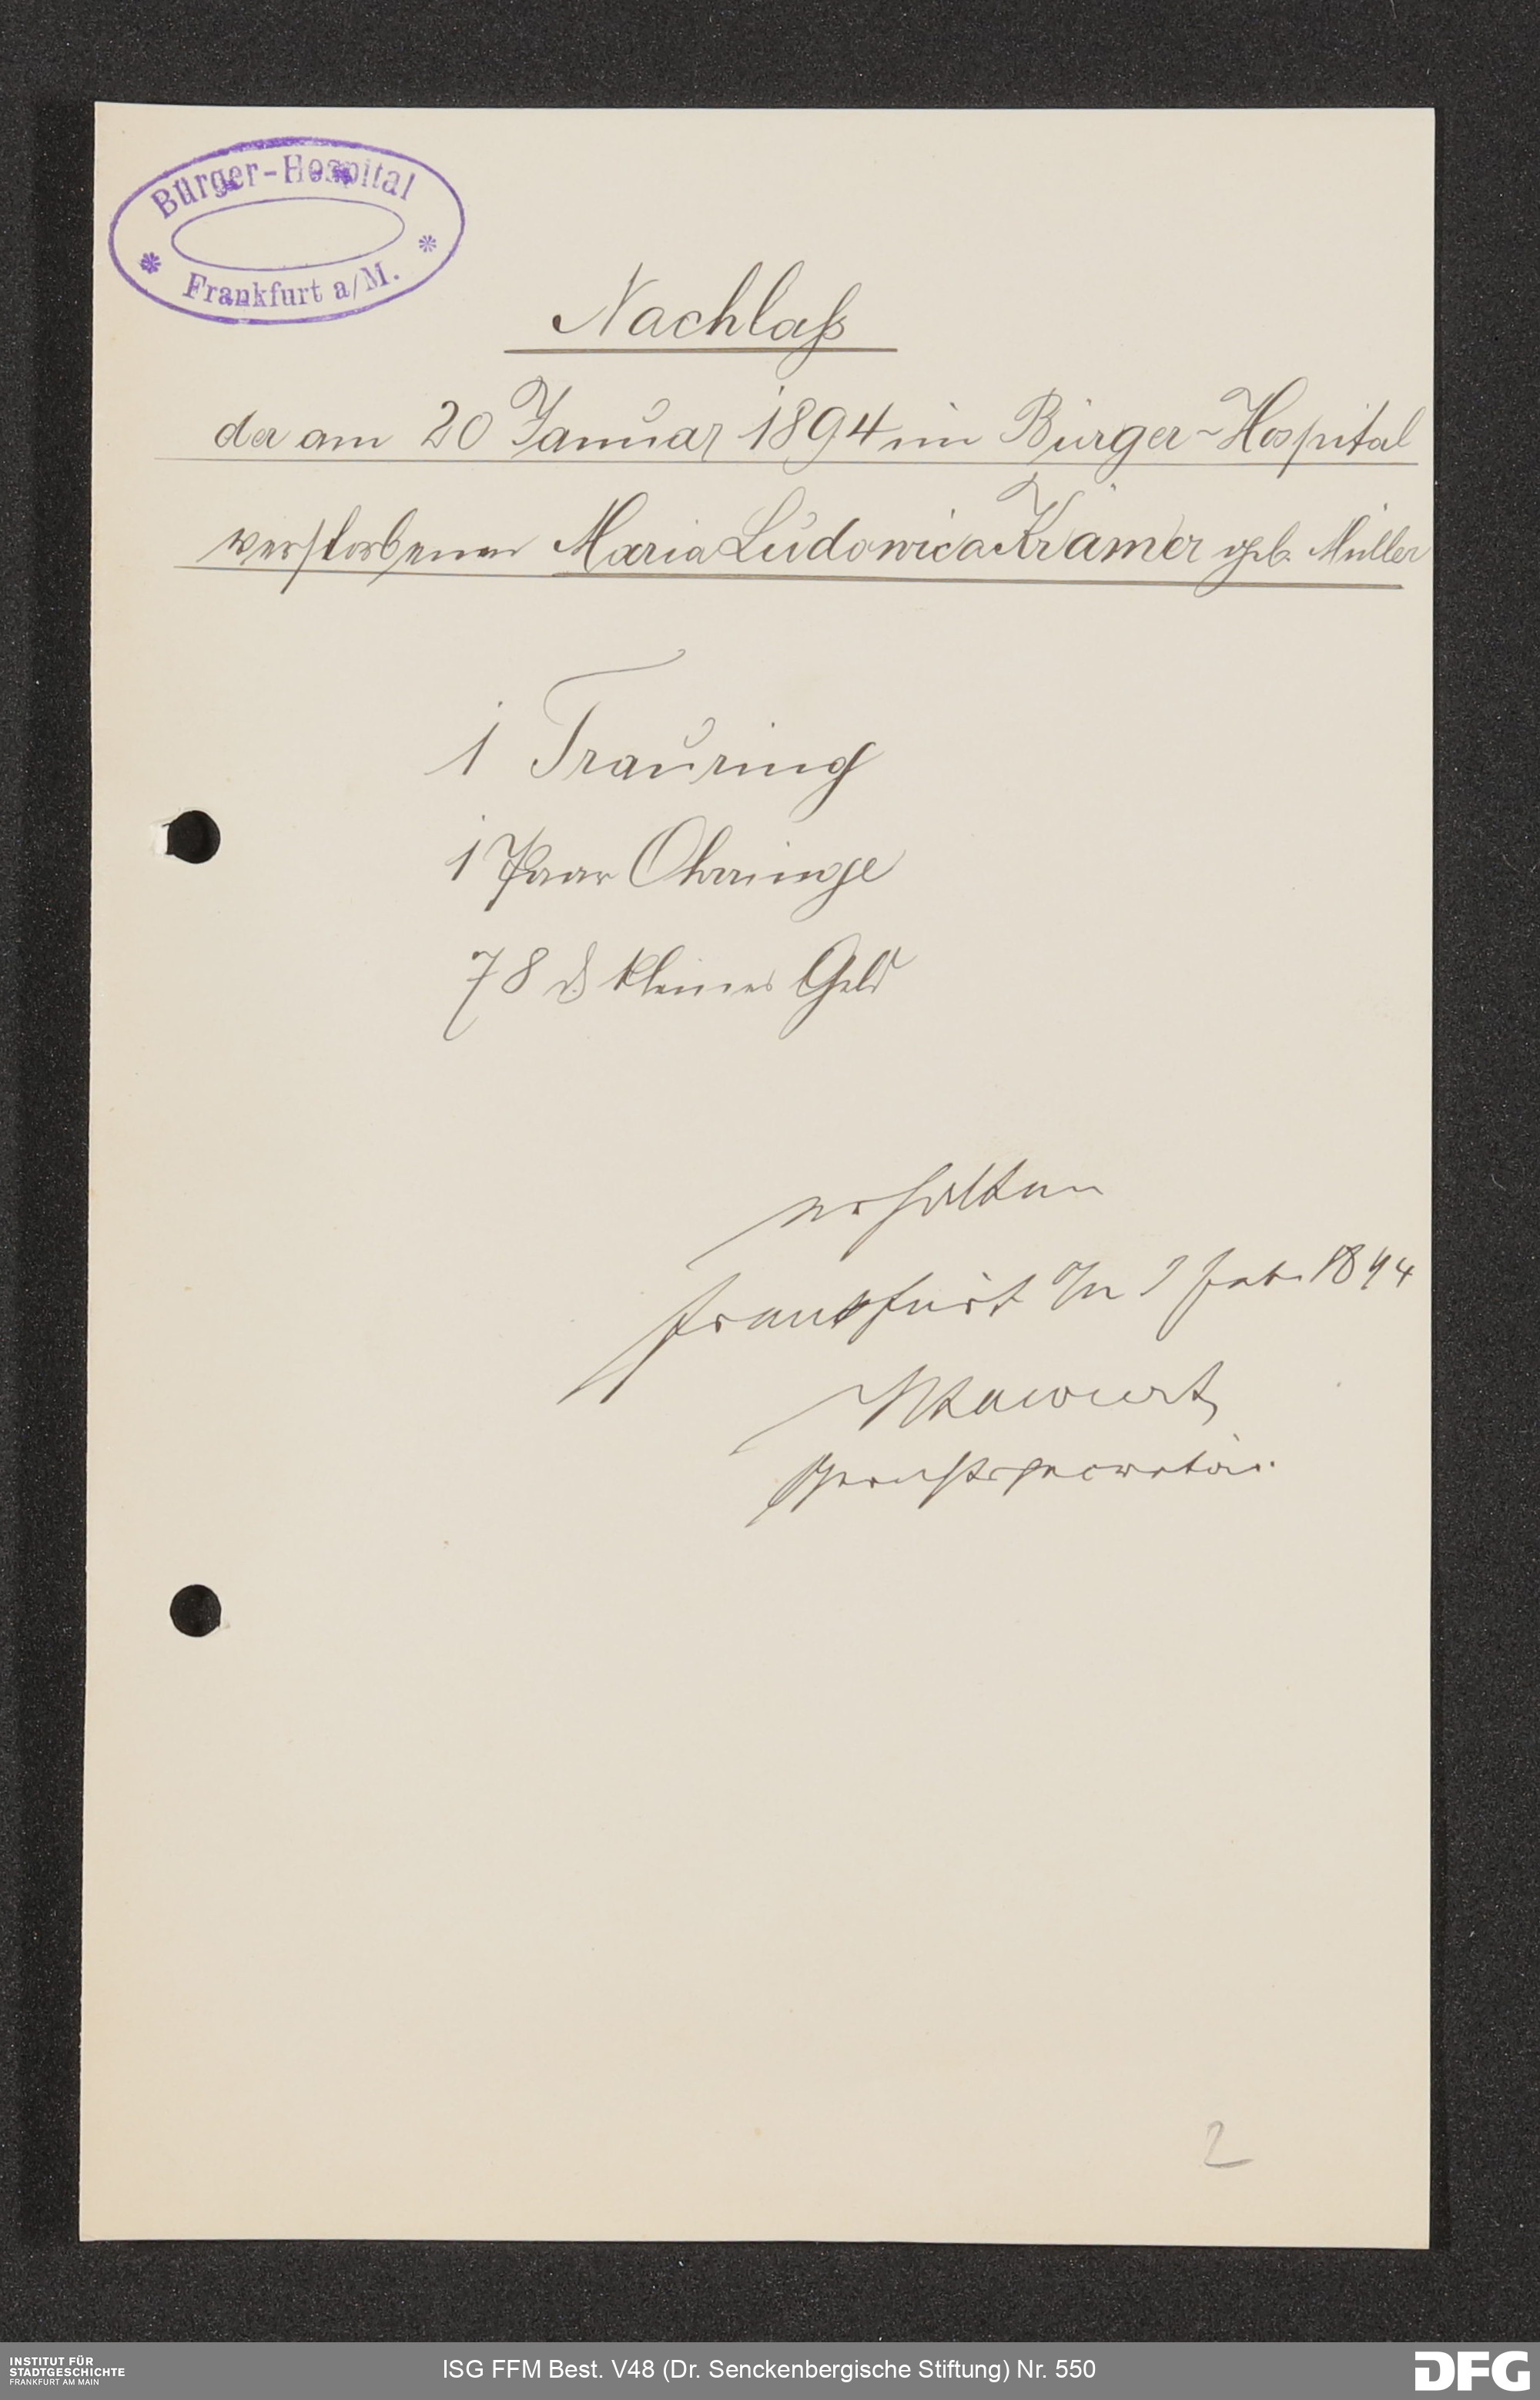 Bürger-Hospital
Frankfurt a/M.
Nachlaß
der am 20 Januar 1894 im Bürger-Hospital
verstorbenen Maria Ludowica Krämer geb. Müller
1 Trauring
1 Paar Ohrringe
78 ₰ kleines Geld
erhalten
Frankfurt a/M Feb. 1894
Gerichtssecretär.
2
INSTITUT FÜR
STADTGESCHICHTE
FRANKFURT AM MAIN
ISG FFM Best. V48 (Dr. Senckenbergische Stiftung) Nr. 550
DFG